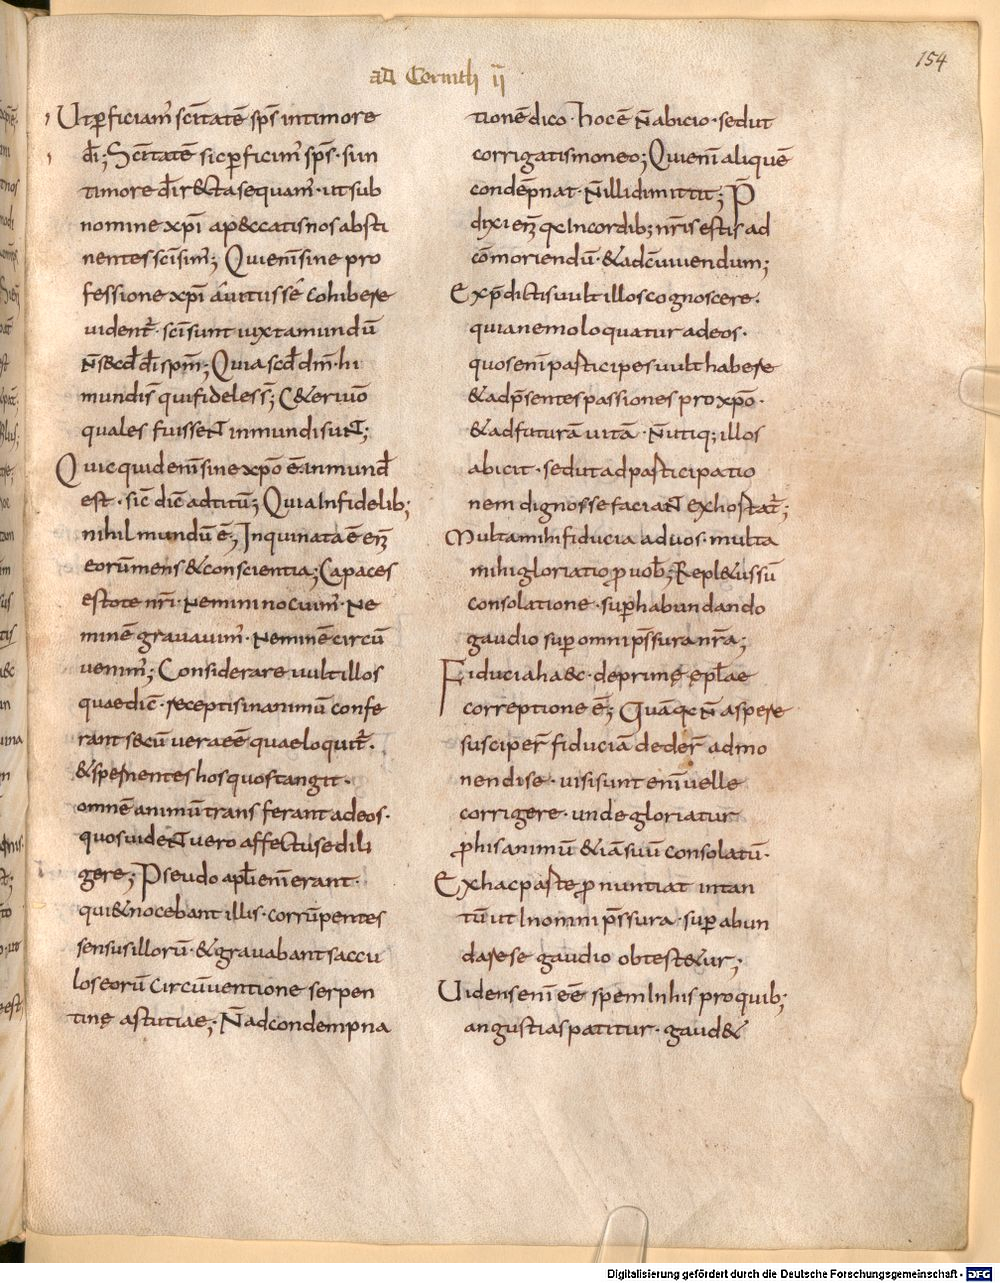 154
ad Corinth ii
Ut ꝑficiam̄ sc̄itatē sp̄s in timore
d̄i; Sc̄itatē sic ꝑficim̄ sp̄s · si in
timore d̄i r&cta sequam̄ · ut sub
nomine xp̄i a p&ccatis nos absti
nentes sc̄i sim̄; Qui enī sine pro
fessione xp̄i a uitiis sē cohibere
uident̄ · sc̄i sunt iuxta mundū
n̄ s&cd̄ d̄i sp̄m; Quia scd̄ dm̄ · hi
mundi s̄ qui fideles s̄; C&eri uō
quales fuisseNT inmundi suNT;
Quicquid enī sine xp̄o ē inmund̄
est · sic̄ dic̄ ad titū; Quia Infidelib;
nihil mundū ē; Inquinata ē eni
eorū mens & conscientia; Capaces
estote nr̄i · Nemini nocuim̄ · Ne
minē grauauim̄ · Neminē circū
uenim̄; Considerare uult illos
quae dic̄ · receptis in animū confe
rant secū uera eē quae loquit̄ ·
& spernentes hos quos tangit ·
omnē animū transferant ad eos ·
quos uideNT uero affectu se dili
gere; Pseudo apl̄i enī erant ·
qui & nocebant illis · corrūpentes
sensus illorū · & grauabant saccu
los eorū circūuentione serpen
tinę astutiae; N̄ ad condempna
tionē dico · hoc ē n̄ abicio · sed ut
corrigatis moneo; Qui enī aliquē
condēpnat · n̄ illi dimittit; P̄
dixi eni qđ In cordib; nr̄is estis ad
cōmoriendū · & ad cūuiuendum;
Ex p̄dictis uult illos cognoscere ·
quia nemo loquatur ad eos ·
quos enī participes uult habere
& ad p̄sentes passiones pro xp̄o ·
& ad futurā uitā · N̄ utiq; illos
abicit · sed ut ad participatio
nem dignos se faciaNT exhortat̄;
Multa mihi fiducia ad uos · multa
mihi gloriatio ꝓ uob̄; Repl&us sū
consolatione · suꝑhabundando
gaudio super omni p̄ssura nr̄a;
Fiducia haec · de prime epl̄ae
correptione ē; Quā qđ n̄ aspere
susciper̄ fiduciā deder̄ admo
nendi se · uisi sunt enī uelle
corrigere · unde gloriatur
ꝓ his animū & iā suū consolatū ·
Ex hac parte ꝓnuntiat in tan
tū ut In omni p̄ssura · suꝑabun
dare se gaudio obtest&ur;
Uidens enī eē spem In his pro quib;
angustias patitur · gaud&
Digitalisierung gefördert durch die Deutsche Forschungsgemeinschaft - DFG